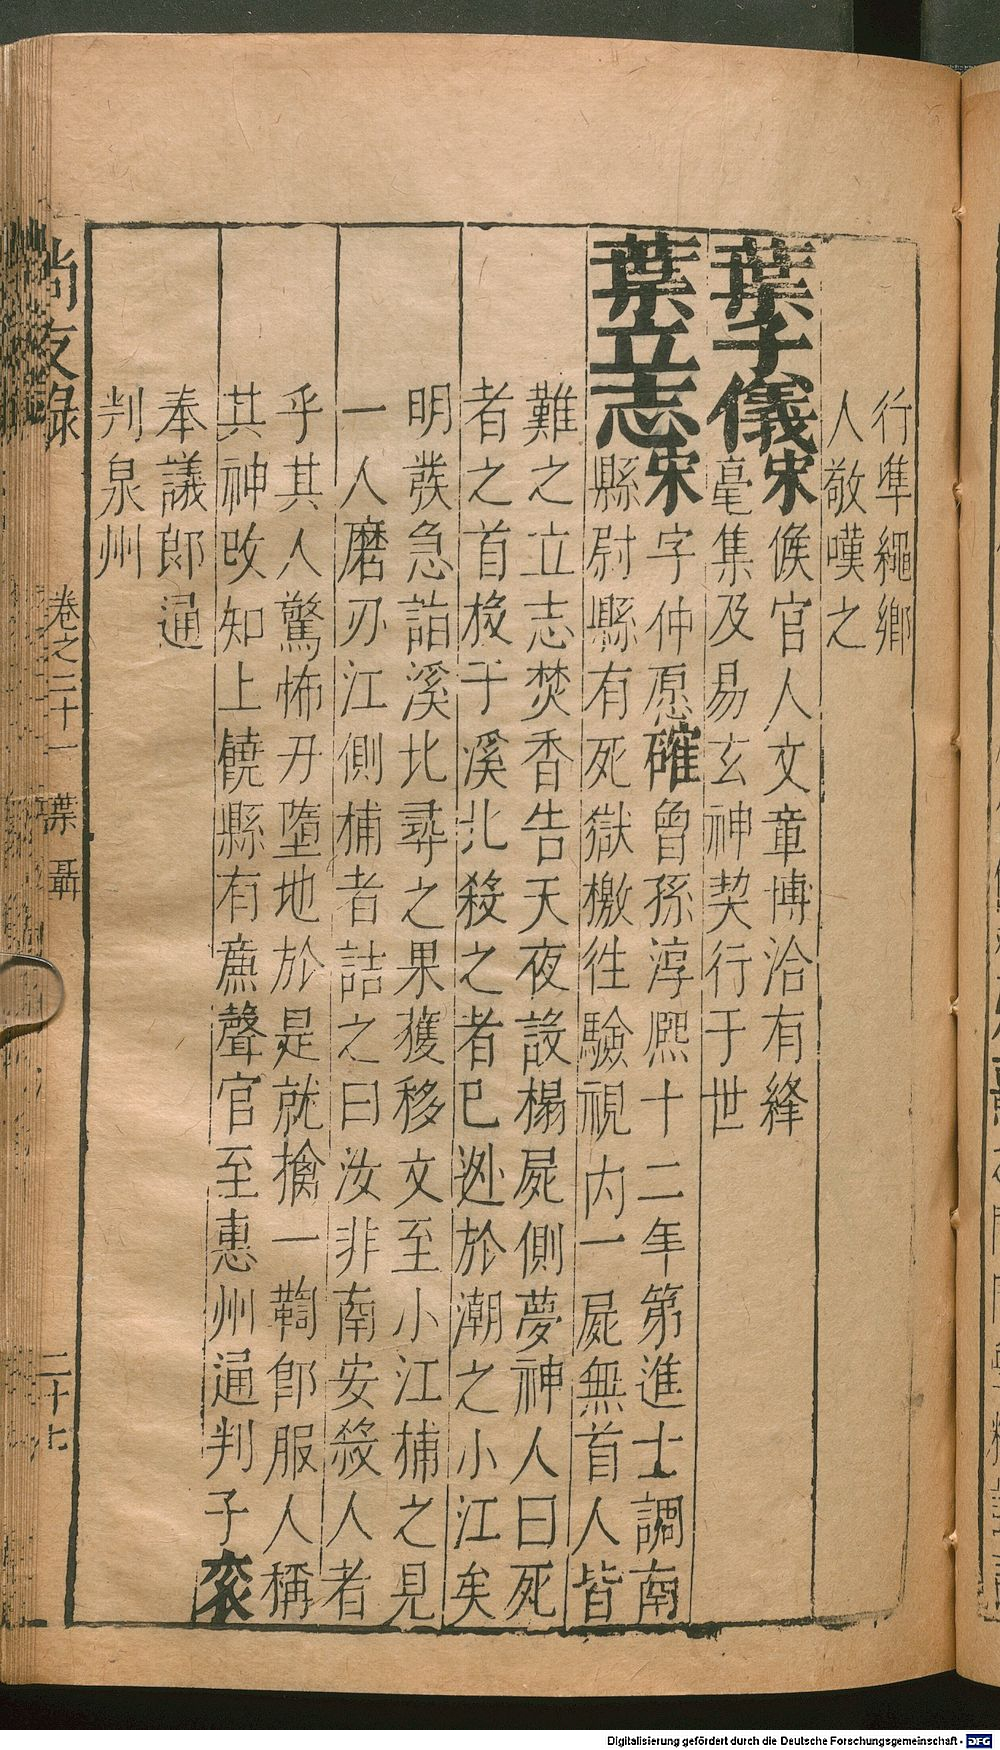 行準繩鄉
人敬嘆之
葉子儀宋候官人文章博洽有絳
毫集及易玄神契行于世
葉立志宋字仲愿確曾孫淳熈十二年第進士調南
縣尉縣有死獄檄徃驗視内一屍無首人皆
難之立志焚香告天夜設榻屍側夢神人曰死
者之首投于溪北殺之者巳迯於潮之小江矣
明發急詣溪北尋之果獲移文至小江捕之見
一人磨刃江側捕者詰之曰汝非南安殺人者
乎其人驚怖刀墮地於是就擒一鞫郎服人稱
其神改知上饒縣有亷聲官至惠州通判子來
奉議郎通
判泉州
尚友錄
卷之二十一
葉聶
二十七
Digitalisierung gefördert durch die Deutsche Forschungsgemeinschaft - DFG